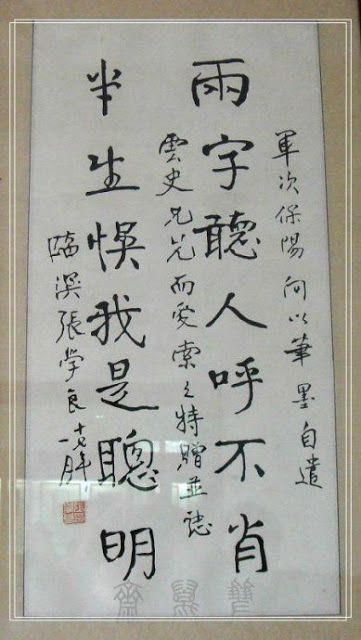 軍次保陽以筆墨自遣
兩字聽人呼不肖
雲史兄而愛索之特贈並誌
半生悮我是聰明
臨溟張学良十七年一月